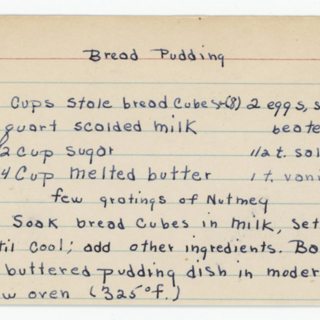 Bread Pudding
Cups stale bread Cubes (8) 2 eggs, s
quart scalded milk beate
2 cup sugar 1/2 t. sal
4 Cup melted butter 1 t. vani
few gratings of Nutmeg
Soak bread Cubes in milk, Set
til cool; add other ingredients. Ba
buttered pudding dish in moder
w oven (325°f.)